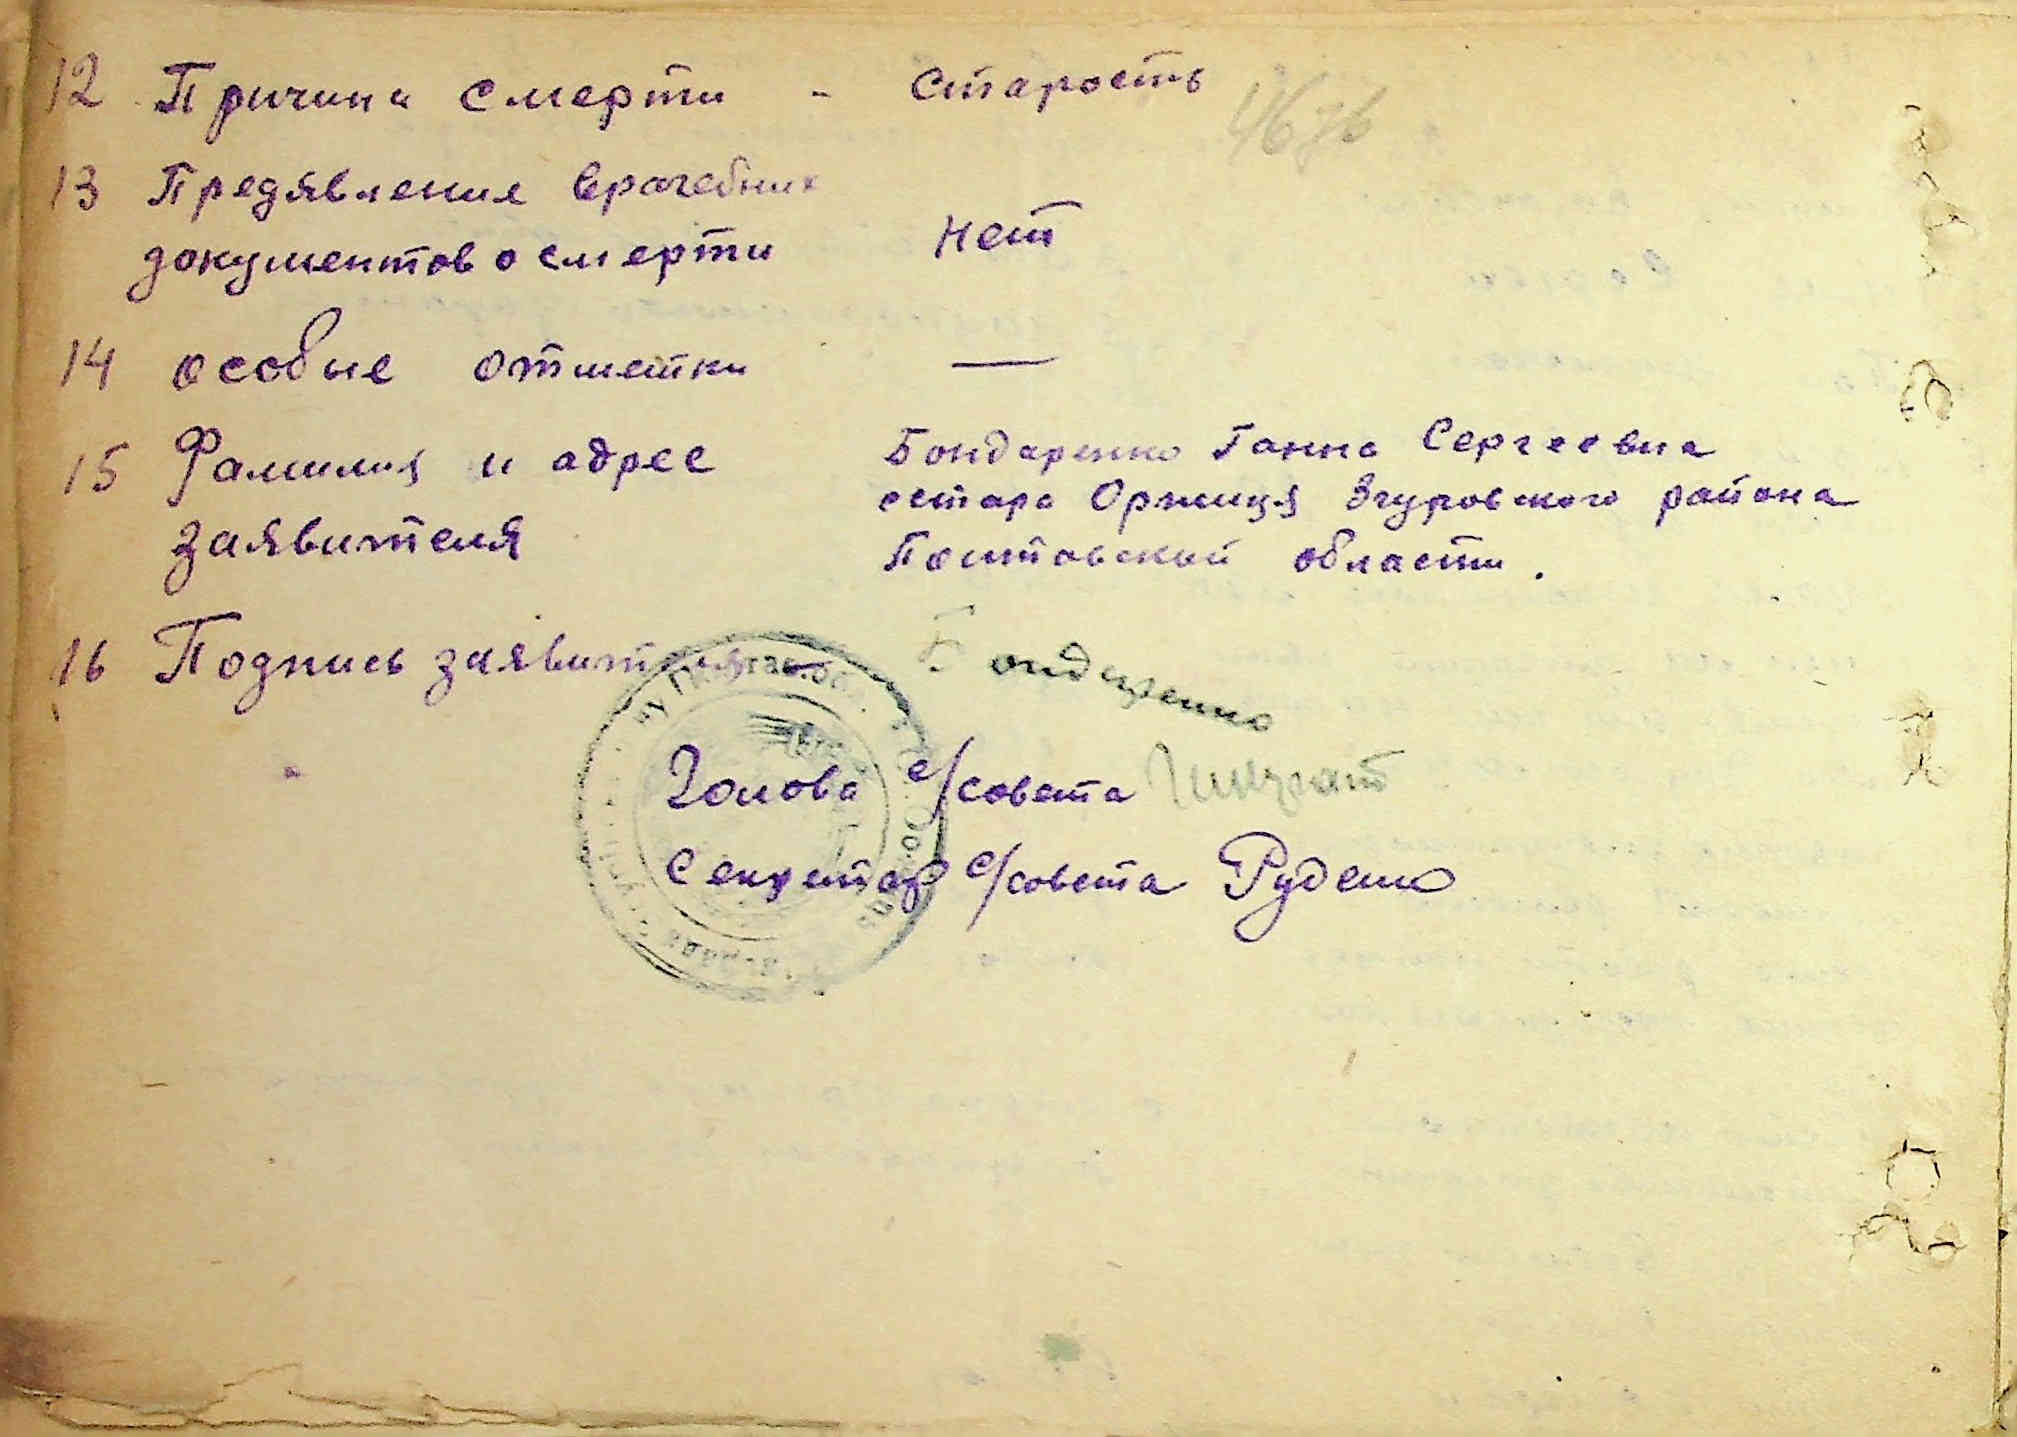 12 Причина смерти - Старость
46 зв
13 Предявления врачебних
документов о смерти Нет
14 особые отметки —
15 Фамилия и адрес
заявителя
Бондаренко Ганна Сергеевна
Оржиця Згуровского района
области.
16 Подпись заявителя Бондаренко
Голова с/совета
Секретар с/совета Руденко